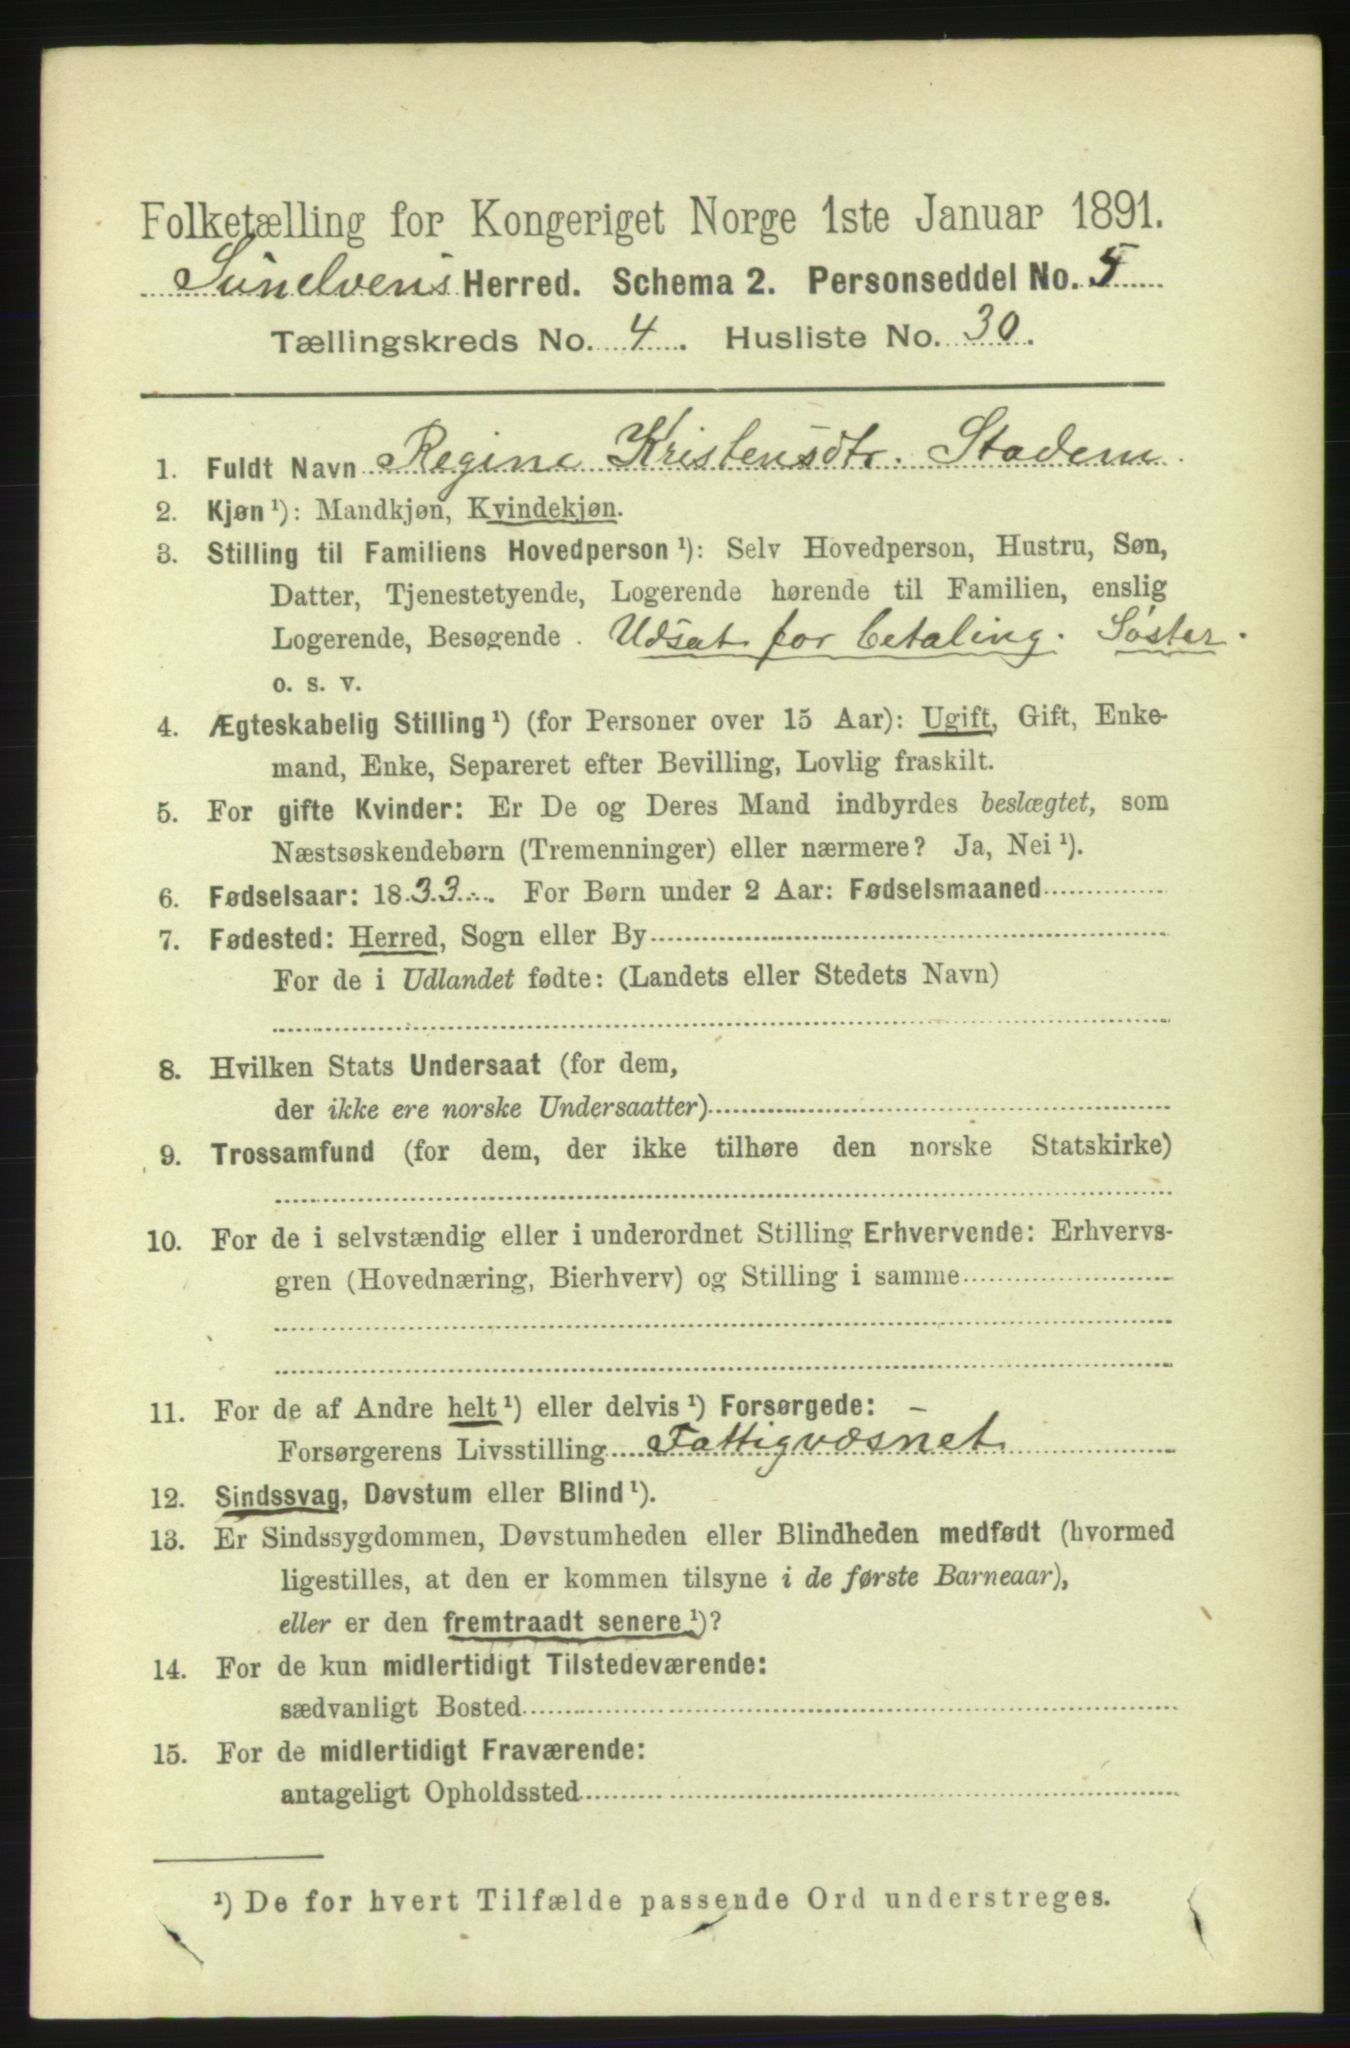 Folketælling for Kongeriget Norge 1ste Januar 1891.
Sunelvens Herred. Schema 2. Personseddel No. 5
Tællingskreds No. 4. Husliste No. 30.
1. Fuldt Navn Regine Kristensdtr. Stadem
2. Kjøn ¹): Mandkjøn, Kvindekjøn.
3. Stilling til Familiens Hovedperson ¹): Selv Hovedperson, Hustru, Søn,
Datter, Tjenestetyende, Logerende hørende til Familien, enslig
Logerende, Besøgende . Udsat for betaling. Søster.
o. s. v.
4. Ægteskabelig Stilling ¹) (for Personer over 15 Aar): Ugift, Gift, Enke-
mand, Enke, Separeret efter Bevilling, Lovlig fraskilt.
5. For gifte Kvinder: Er De og Deres Mand indbyrdes beslægtet, som
Næstsøskendebørn (Tremenninger) eller nærmere? Ja, Nei ¹).
6. Fødselsaar: 1833. For Børn under 2 Aar: Fødselsmaaned
7. Fødested: Herred, Sogn eller By
For de i Udlandet fødte: (Landets eller Stedets Navn)
8. Hvilken Stats Undersaat (for dem,
der ikke ere norske Undersaatter)
9. Trossamfund (for dem, der ikke tilhøre den norske Statskirke)
10. For de i selvstændig eller i underordnet Stilling Erhvervende: Erhvervs-
gren (Hovednæring, Bierhverv) og Stilling i samme
11. For de af Andre helt ¹) eller delvis ¹) Forsørgede: -
Forsørgerens Livsstilling Fattigvæsnet
12. Sindssvag, Døvstum eller Blind ¹).
13. Er Sindssygdommen, Døvstumheden eller Blindheden medfødt (hvormed
ligestilles, at den er kommen tilsyne i de første Barneaar),
eller er den fremtraadt senere ¹)?
14. For de kun midlertidigt Tilstedeværende:
sædvanligt Bosted
15. For de midlertidigt Fraværende:
antageligt Opholdssted
¹) De for hvert Tilfælde passende Ord understreges.